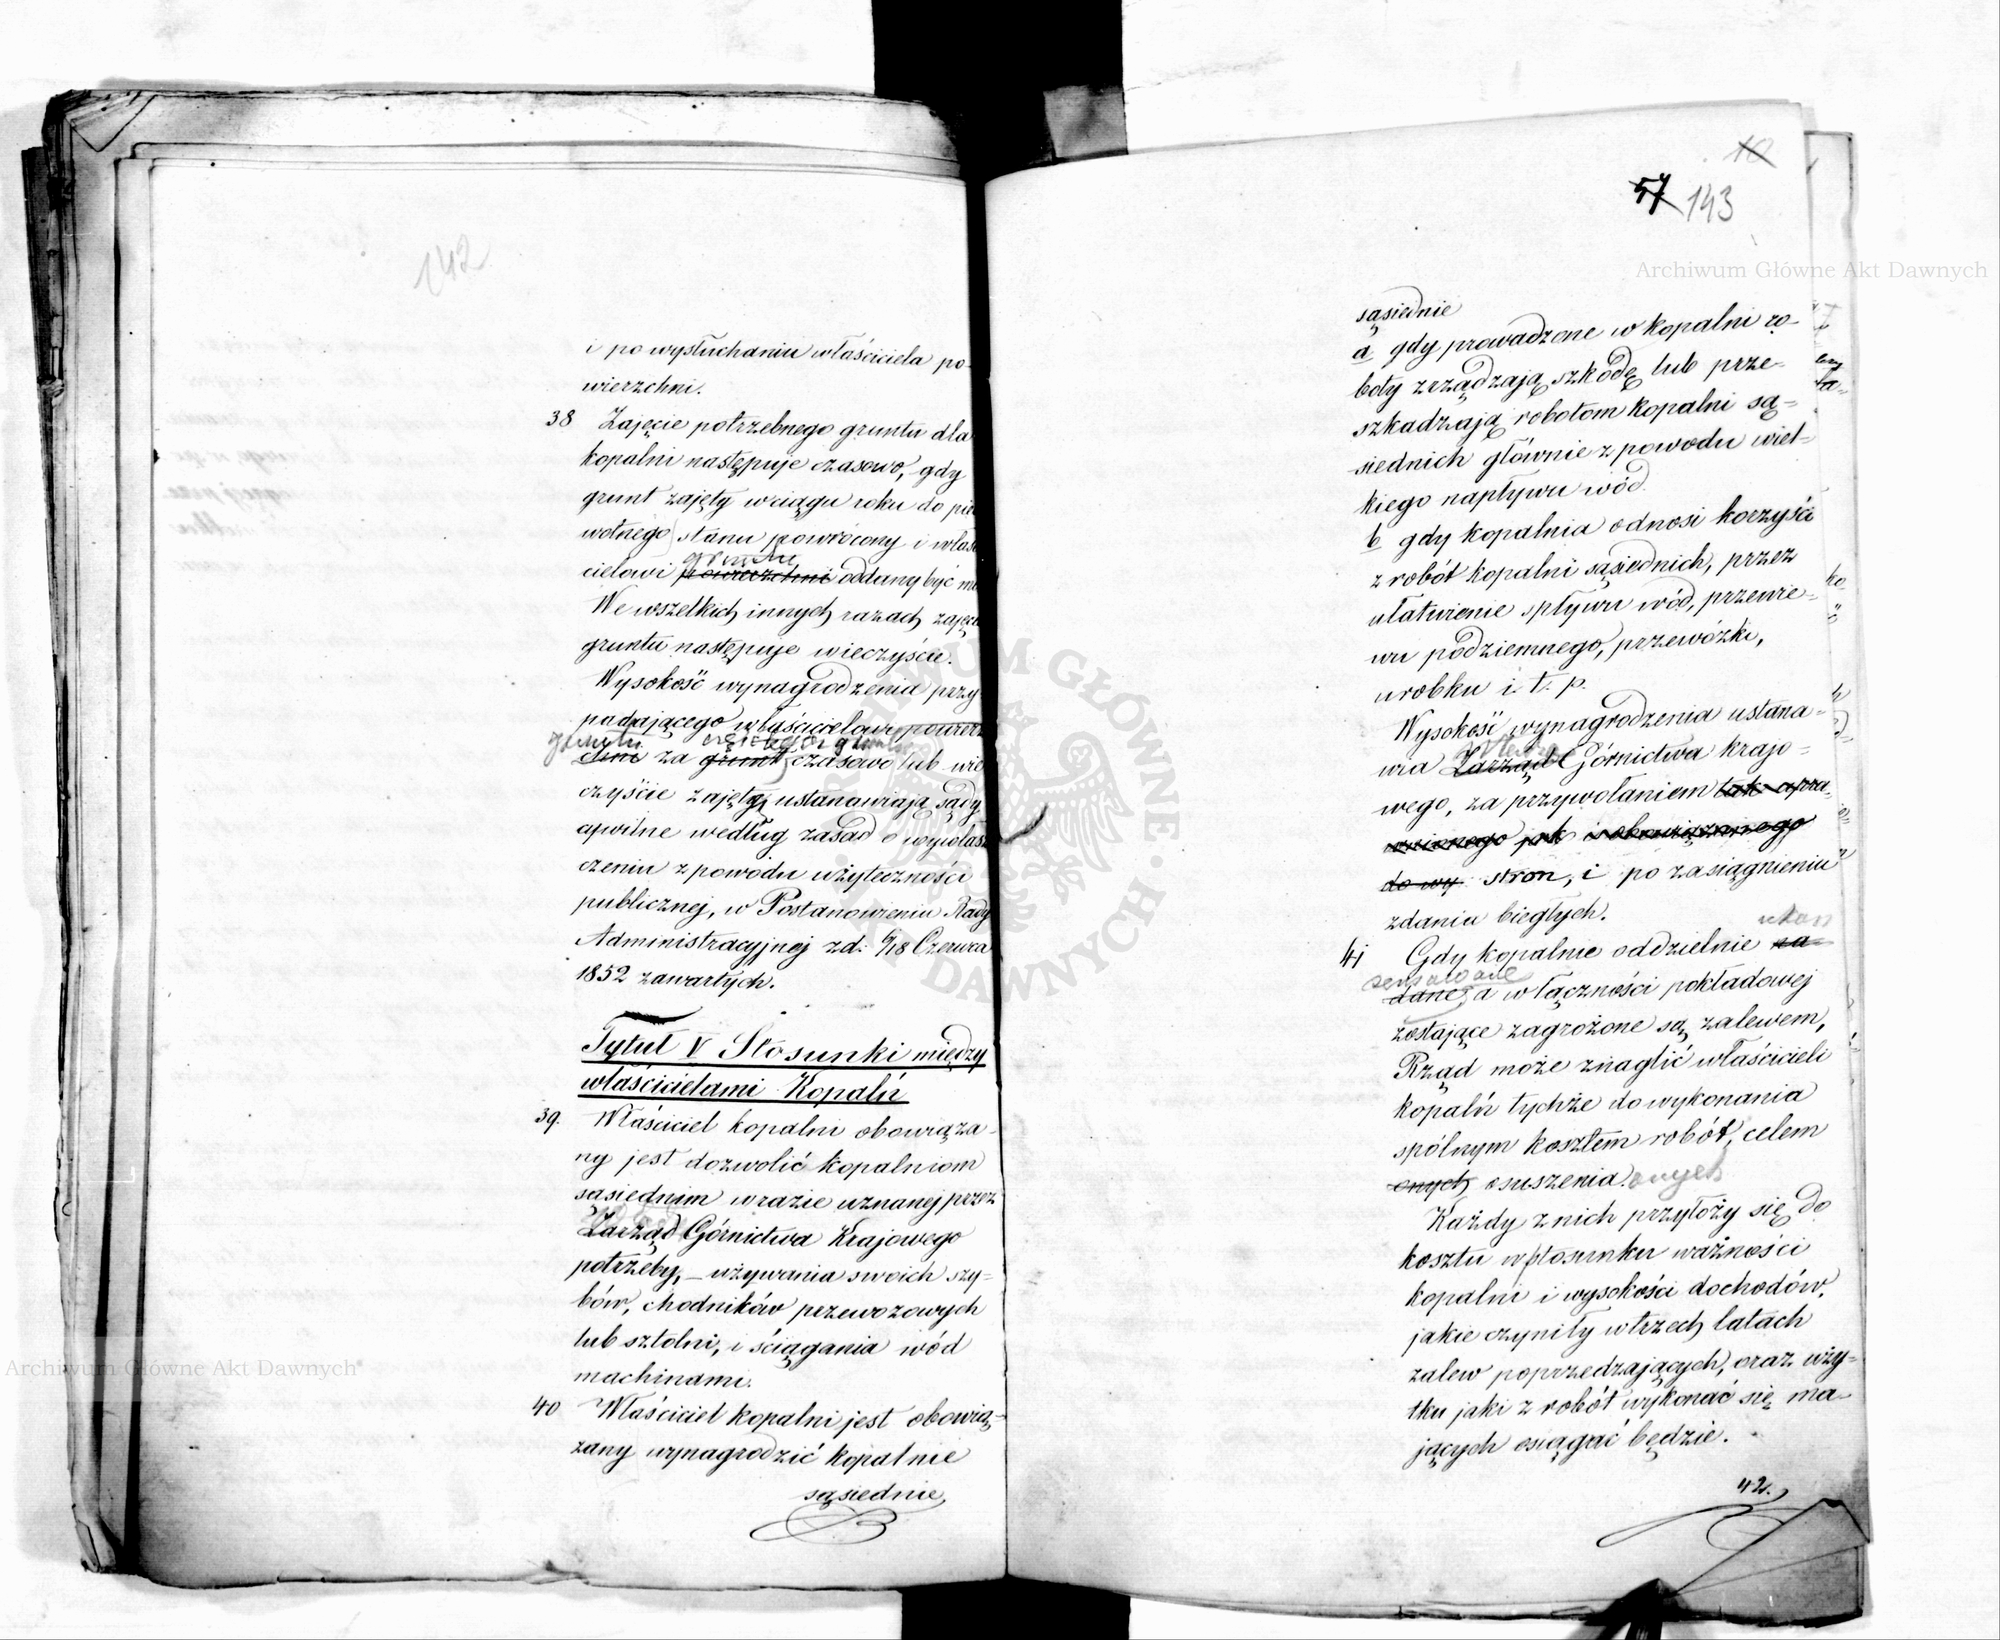 142
i po wysłuchaniu właściciela po-
wierzchni.
38 Zajęcie potrzebnego gruntu dla
kopalni następuje czasowo, gdy
grunt zajęty w ciągu roku do pier
wotnego stanu powrócony i właś
gruntu
cielowi powierzchni oddany być mo
We wszelkich innych razach zajęci
gruntu następuje wieczyście.
Wysokość wynagrodzenia przy
padającego właścicielowi powierz
gruntu
chni za grunt czasowo lub wie
czyście zajęty, ustanawiają sądy
cywilne według zasad o wywłasz
czeniu z powodu użyteczności
publicznej, w Postanowieniu Rady
Administracyjnej z d. 6/18 Czerwca
1852 zawartych.
Tytuł V Stosunki między
właścicielami Kopalń
39. Właściciel kopalni obowiąza-
ny jest dozwolić kopalniom
sąsiednim w razie uznanej przez
Zarząd Górnictwa Krajowego
potrzeby, – używania swoich szy=
bów, chodników przewozowych
lub sztolni, i ściągania wód
machinami.
40 Właściciel kopalni jest obowią=
zany wynagrodzić kopalnie
sąsiednie
10
57 143
sąsiednie
a gdy prowadzone w kopalni ro-
boty zrządzają szkodę lub prze-
szkadzają robotom kopalni są=
siednich głównie z powodu wiel=
kiego napływu wód.
b gdy kopalnia odnosi korzyści
z robót kopalni sąsiednich, przez
ułatwienie spływu wód, przewie=
wu podziemnego, przewózki,
urobku i. t. p.
Wysokość wynagrodzenia ustana=
Władza
wia Zarząd Górnictwa krajo=
wego, za przywołaniem tak upra=
wnionego jak i obowiązanego
do wy stron, i po zasiągnieniu
zdania biegłych.
41 Gdy kopalnie oddzielnie na=
dane, a w łączności pokładowej
zostające zagrożone są zalewem,
Rząd może znaglić właścicieli
kopalń tychże do wykonania
spólnym kosztem robót, celem
onych osuszenia onych
Każdy z nich przyłoży się do
kosztu w stosunku ważności
kopalni i wysokości dochodów,
jakie czyniły w trzech latach
zalew poprzedzających, oraz uży=
tku jaki z robót wykonać się ma=
jących osiągać będzie.
42.
Archiwum Główne Akt Dawnych
Archiwum Główne Akt Dawnych
ARCHIWUM GŁÓWNE AKT DAWNYCH